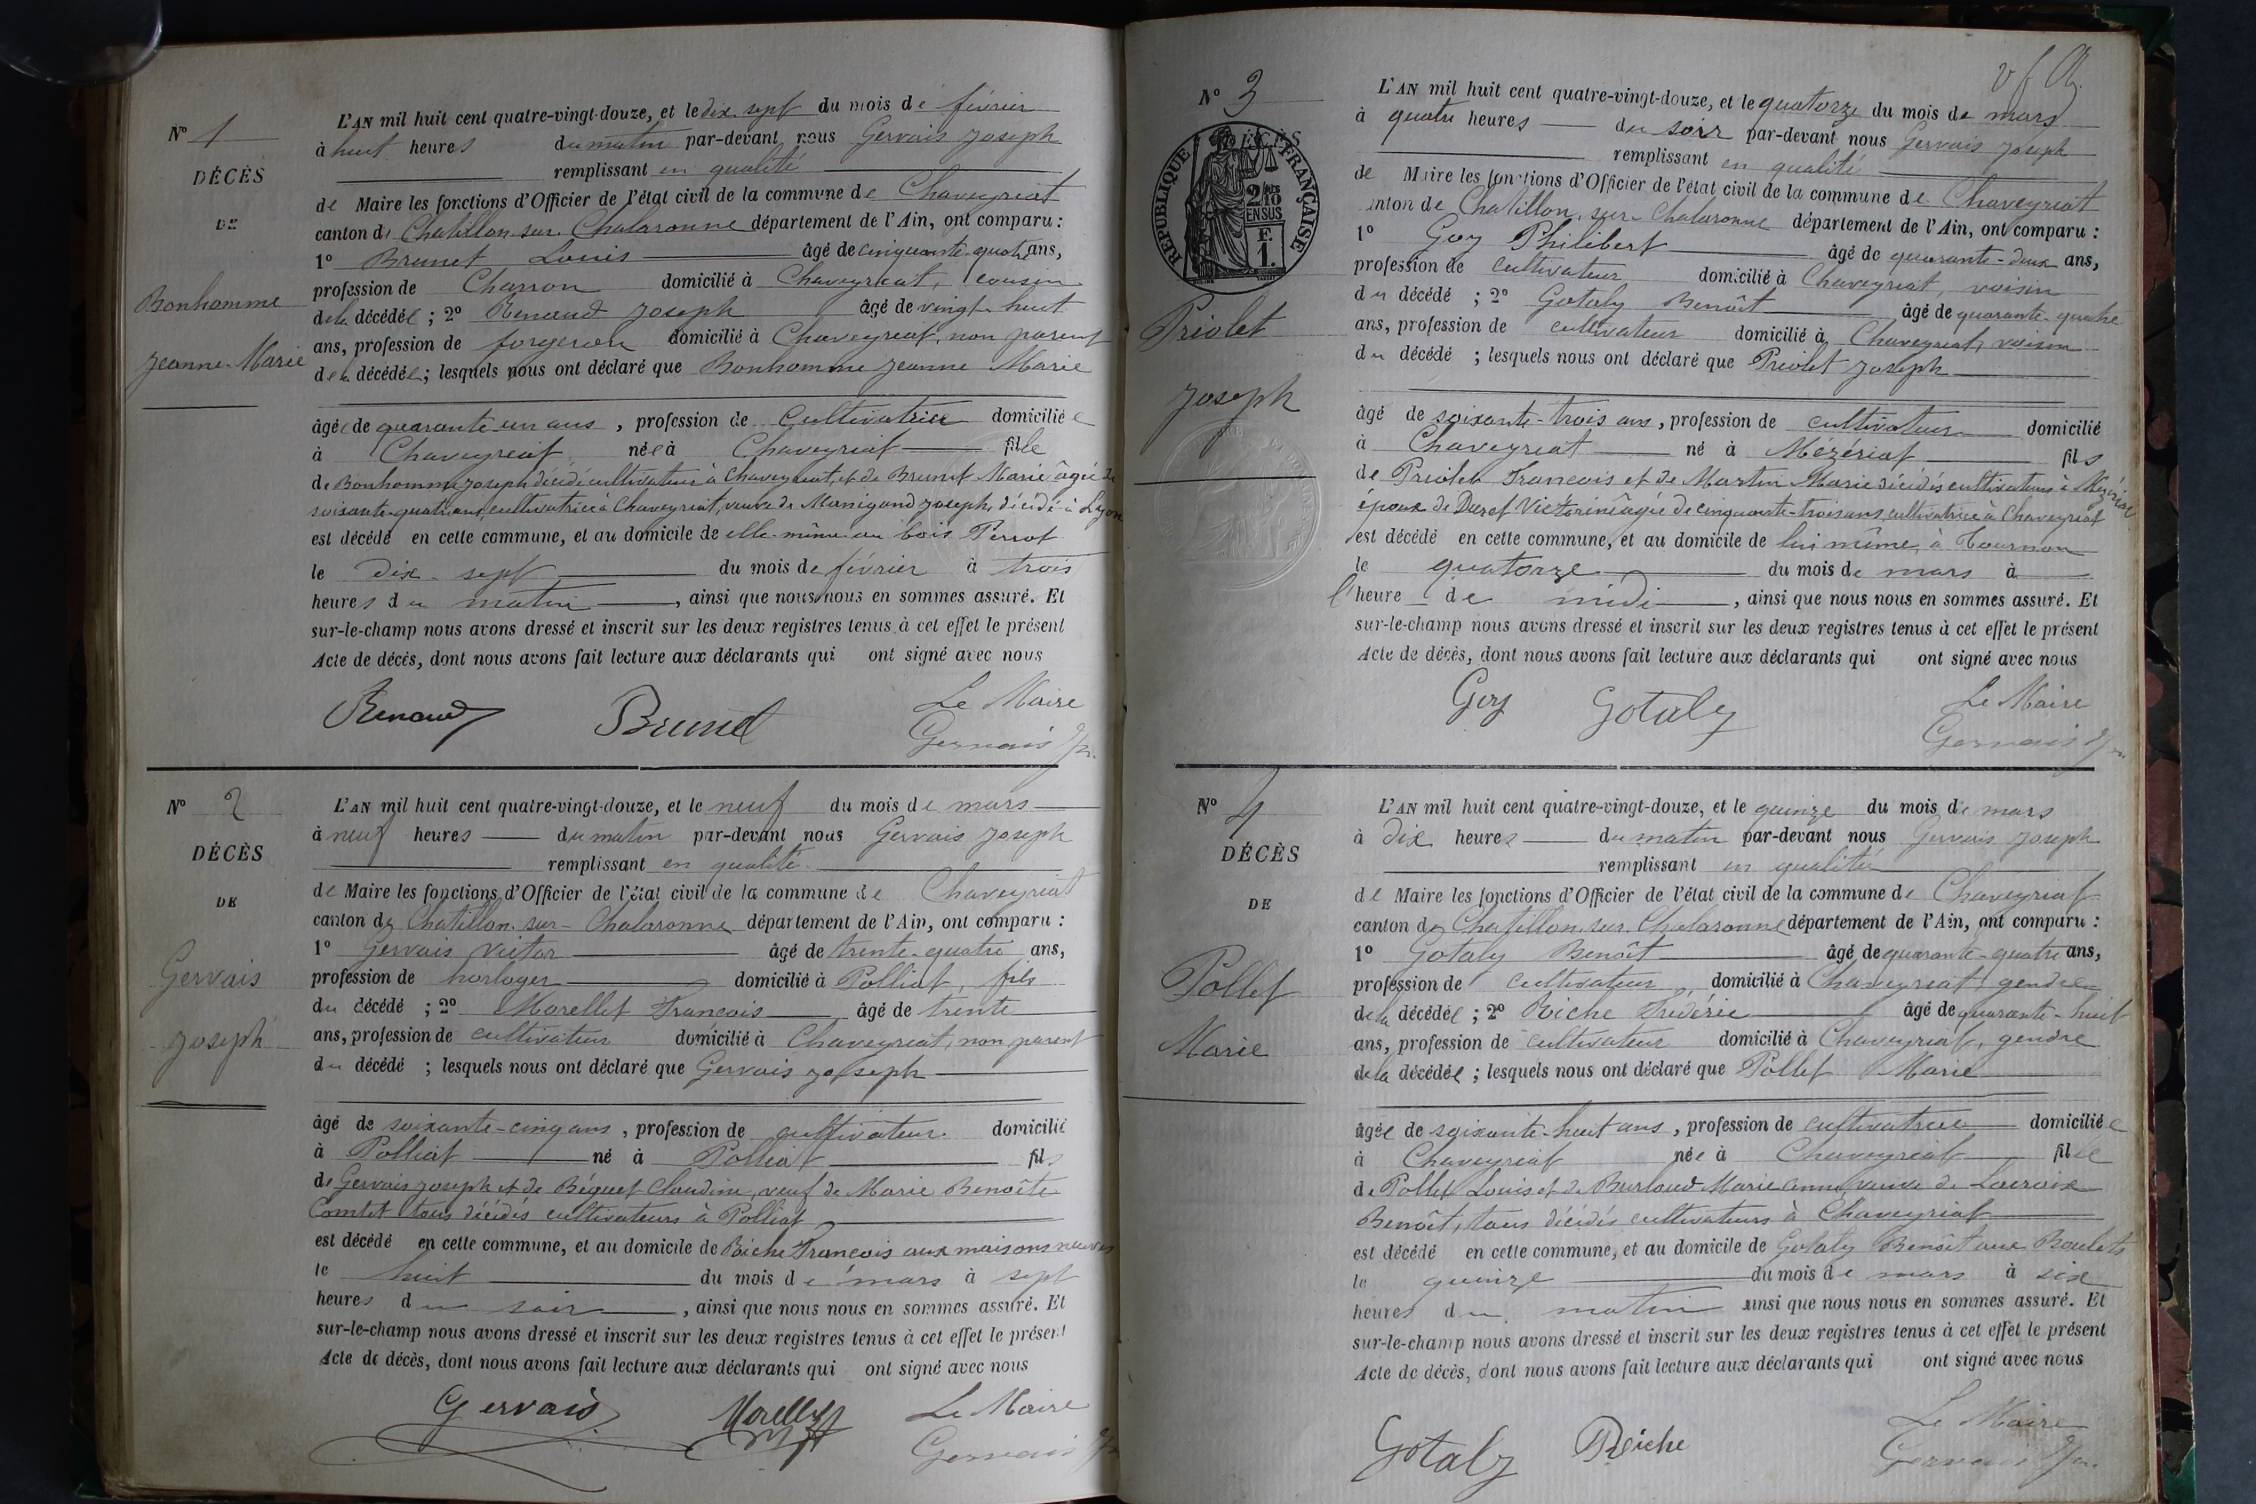 N° 1
DÉCÈS
DE
Bonhomme
Jeanne-Marie
L'AN mil huit cent quatre-vingt-douze, et le dix-sept du mois de février
à huit heures du matin par-devant nous Gervais Joseph
remplissant en qualité
de Maire les fonctions d'Officier de l'état civil de la commune de Chaveyriat
canton de Chatillon-sur-Chalaronne département de l'Ain, ont comparu :
1° Brunet Louis âgé de cinquante-quatre ans,
profession de Charron domicilié à Chaveyriat, cousin
de la décédée ; 2° Renaud Joseph âgé de vingt-huit
ans, profession de forgeron domicilié à Chaveyriat, non parent
de la décédée ; lesquels nous ont déclaré que Bonhomme Jeanne Marie
âgée de quarante-un ans, profession de cultivatrice domiciliée
à Chaveyriat née à Chaveyriat fille
de Bonhomme Joseph décédé cultivateur à Chaveyriat, et de Brunet Marie âgée de
soixante-quatre ans, cultivatrice à Chaveyriat, veuve de Manigand Joseph, décédé à Lyon
est décédé en cette commune, et au domicile de elle-même au bois Perrot
le dix-sept du mois de février à trois
heures du matin, ainsi que nous nous en sommes assuré. Et
sur-le-champ nous avons dressé et inscrit sur les deux registres tenus à cet effet le présent
Acte de décès, dont nous avons fait lecture aux déclarants qui ont signé avec nous
Renaud Brunet Le Maire
Gervais Jph.
N° 2
DÉCÈS
DE
Gervais
Joseph
L'AN mil huit cent quatre-vingt-douze, et le neuf du mois de mars
à neuf heures du matin par-devant nous Gervais Joseph
remplissant en qualité
de Maire les fonctions d'Officier de l'état civil de la commune de Chaveyriat
canton de Chatillon-sur-Chalaronne département de l'Ain, ont comparu :
1° Gervais Victor âgé de trente-quatre ans,
profession de horloger domicilié à Polliat, fils
du décédé ; 2° Morellet François âgé de trente
ans, profession de cultivateur domicilié à Chaveyriat, non parent
du décédé ; lesquels nous ont déclaré que Gervais Joseph
âgé de soixante-cinq ans, profession de cultivateur domicilié
à Polliat né à Polliat fils
de Gervais Joseph et de Béguet Claudine, veuf de Marie Benoîte
Comtet tous décédés cultivateurs à Polliat
est décédé en cette commune, et au domicile de Reiche François aux maisons neuves
le huit du mois de mars à sept
heures du soir, ainsi que nous nous en sommes assuré. Et
sur-le-champ nous avons dressé et inscrit sur les deux registres tenus à cet effet le présent
Acte de décès, dont nous avons fait lecture aux déclarants qui ont signé avec nous
Gervais Morellet Le Maire
Gervais
N° 3
DÉCÈS
RÉPUBLIQUE FRANÇAISE
2/10
EN SUS
F.
1.
Priolet
Joseph
L'AN mil huit cent quatre-vingt-douze, et le quatorze du mois de mars
à quatre heures du soir par-devant nous Gervais Joseph
remplissant en qualité
de Maire les fonctions d'Officier de l'état civil de la commune de Chaveyriat
anton de Chatillon-sur-Chalaronne département de l'Ain, ont comparu :
1° Goy Philibert âgé de quarante-deux ans,
profession de cultivateur domicilié à Chaveyriat, voisin
du décédé ; 2° Gotaly Benoît âgé de quarante-quatre
ans, profession de cultivateur domicilié à Chaveyriat, voisin
du décédé ; lesquels nous ont déclaré que Priolet Joseph
âgé de soixante-trois ans, profession de cultivateur domicilié
à Chaveyriat né à Mézériat fils
de Priolet François et de Martin Marie décédés cultivateurs à Mézériat
époux de Duret Victorine âgée de cinquante-trois ans cultivatrice à Chaveyriat
est décédé en cette commune, et au domicile de lui même, à Tournon
le quatorze du mois de mars à
l'heure de midi, ainsi que nous nous en sommes assuré. Et
sur-le-champ nous avons dressé et inscrit sur les deux registres tenus à cet effet le présent
Acte de décès, dont nous avons fait lecture aux déclarants qui ont signé avec nous
Goy Gotaly Le Maire
Gervais Jph
N° 4
DÉCÈS
DE
Pollet
Marie
L'AN mil huit cent quatre-vingt-douze, et le quinze du mois de mars
à dix heures du matin par-devant nous Gervais Joseph
remplissant en qualité
de Maire les fonctions d'Officier de l'état civil de la commune de Chaveyriat
canton de Chatillon-sur-Chalaronne département de l'Ain, ont comparu :
1° Gotaly Benoît âgé de quarante-quatre ans,
profession de cultivateur domicilié à Chaveyriat, gendre
de la décédée ; 2° Reiche Frédéric âgé de quarante-huit
ans, profession de cultivateur domicilié à Chaveyriat, gendre
de la décédée ; lesquels nous ont déclaré que Pollet Marie
âgée de soixante-huit ans, profession de cultivatrice domiciliée
à Chaveyriat née à Chaveyriat fille
de Pollet Louis et de Burtaud Marie Anne, veuve de Lacroix
Benoît, tous décédés cultivateurs à Chaveyriat
est décédé en cette commune, et au domicile de Gotaly Benoît aux Boulets
le quinze du mois de mars à six
heures du matin ainsi que nous nous en sommes assuré. Et
sur-le-champ nous avons dressé et inscrit sur les deux registres tenus à cet effet le présent
Acte de décès, dont nous avons fait lecture aux déclarants qui ont signé avec nous
Gotaly Reiche Le Maire
Gervais Jph.